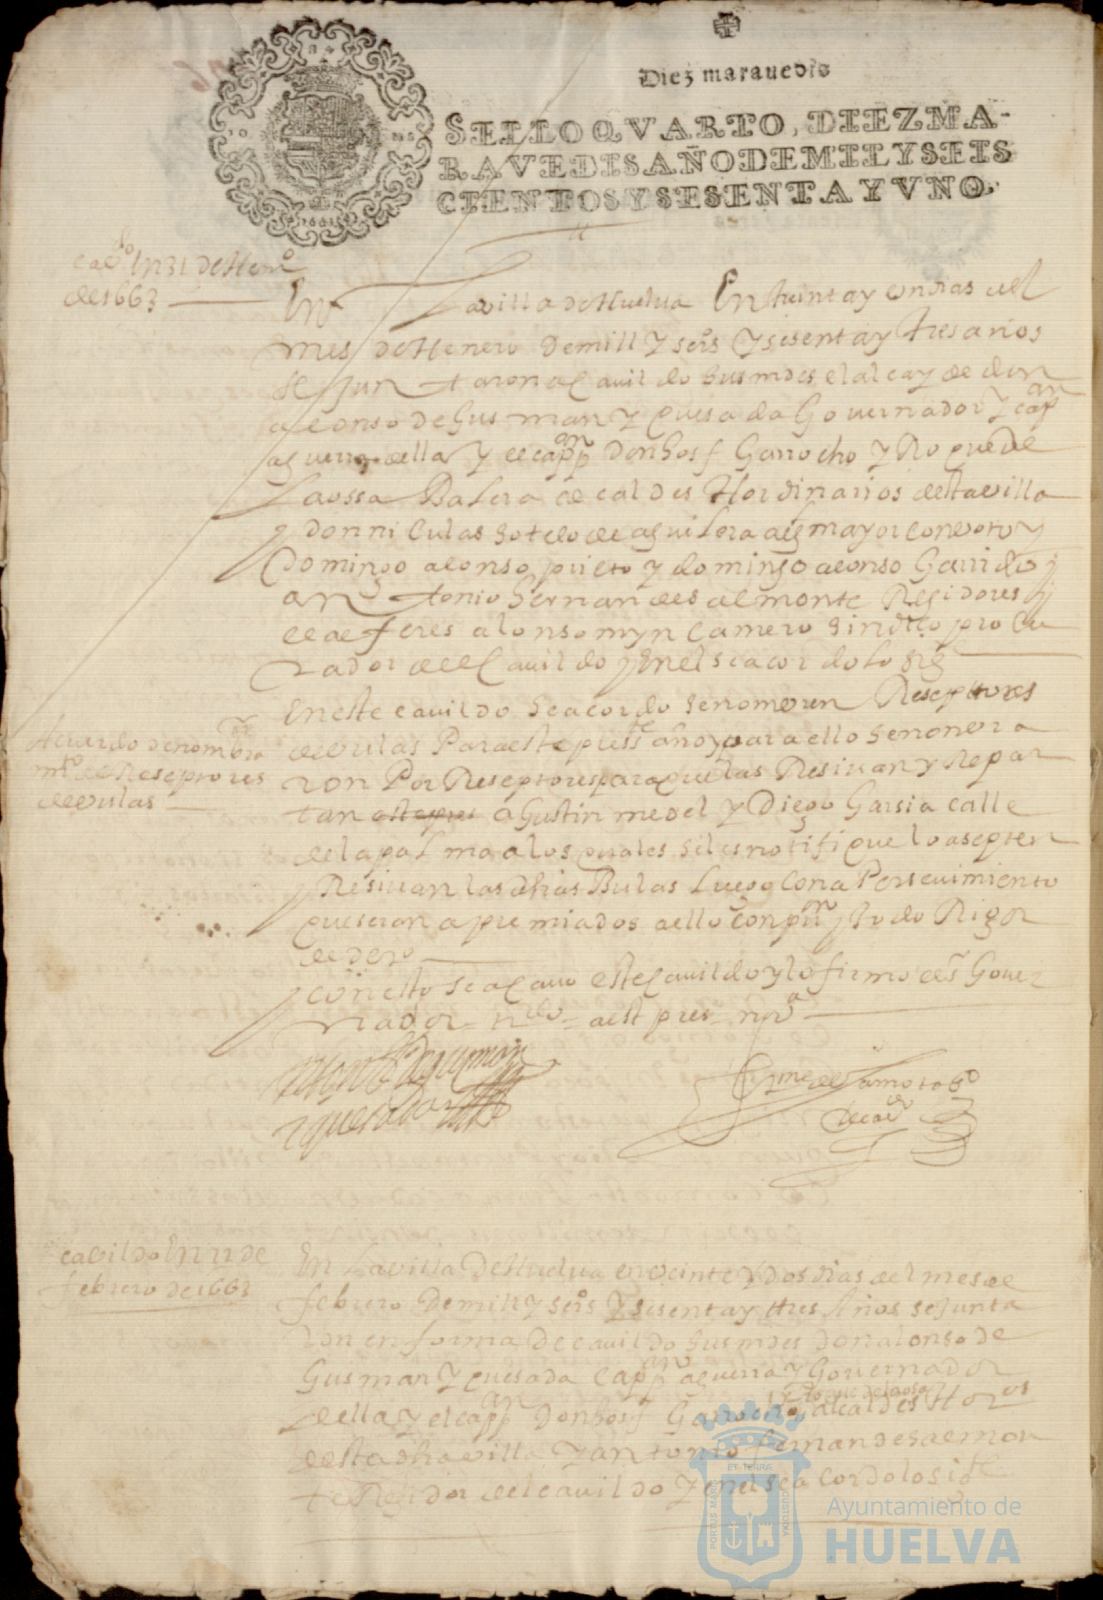 Diez maravedis
SELLO QVARTO, DIEZ MA-
RAVEDIS AÑO DE MIL Y SEIS
CIENTOS Y SESENTA Y VNO.
1661
cavdo En 31 de Heno
de 1663
En La villa de Huelua En treinta y un dias del
mes de Henero de mill y seis y sesenta y tres años
se juntaron a Cauildo sus mdes el alcayde don
alonso de Gusman y quesada Gouernador y capan
a guerra della y el cappan Don Josf Garrocho y Roque de
La ossa alcaldes Hordinarios desta villa
y don niculas sotelo de aguilera alg mayor con voto y
Domingo alonso prieto y domingo alonso Garrido y
an tonio Hernandes de almonte Regidores y
el alferes alonso mrn Camero sindico procu
rador del Cauildo y en el se acordo lo sig
En este cauildo se acordo se nombren Reseptores
Acuerdo de nombra
mto de Reseptores
de bulas
de bulas Para este presste año y para ello se nonbra
ron Por Reseptores para que las Resiuan y Repar
tan este pres a Gustin medel y Diego Garsia calle
de la palma a los quales se les notifique lo asepten
y Resiuan las dhas Bulas Luego con a Persevimiento
que seran apremiados a ello con pon y todo Rigor
de dero
y con esto se acauo este Cauildo y lo firmo el sr Gouer
nador
Alonso de gusman
y quesada
de cavdo
cavildo En 22 de
febrero de 1663
En La villa de Huelua en veinte y dos dias del mes de
febrero de mill y seis y sesenta y tres Años se junta
ron en forma de cauildo sus mdes don alonso de
Gusman y quesada Cappan a guerra y Gouernador
y Roque de la osa
della y el capp Don Josf Garrocho alcaldes Horos
desta dha villa y antonio fernandes de almon
te Regidor del cauildo y en el se a Cordo lo sigte
PORTUS MARIS
ET TERRÆ
CUSTODIA
Ayuntamiento de
HUELVA